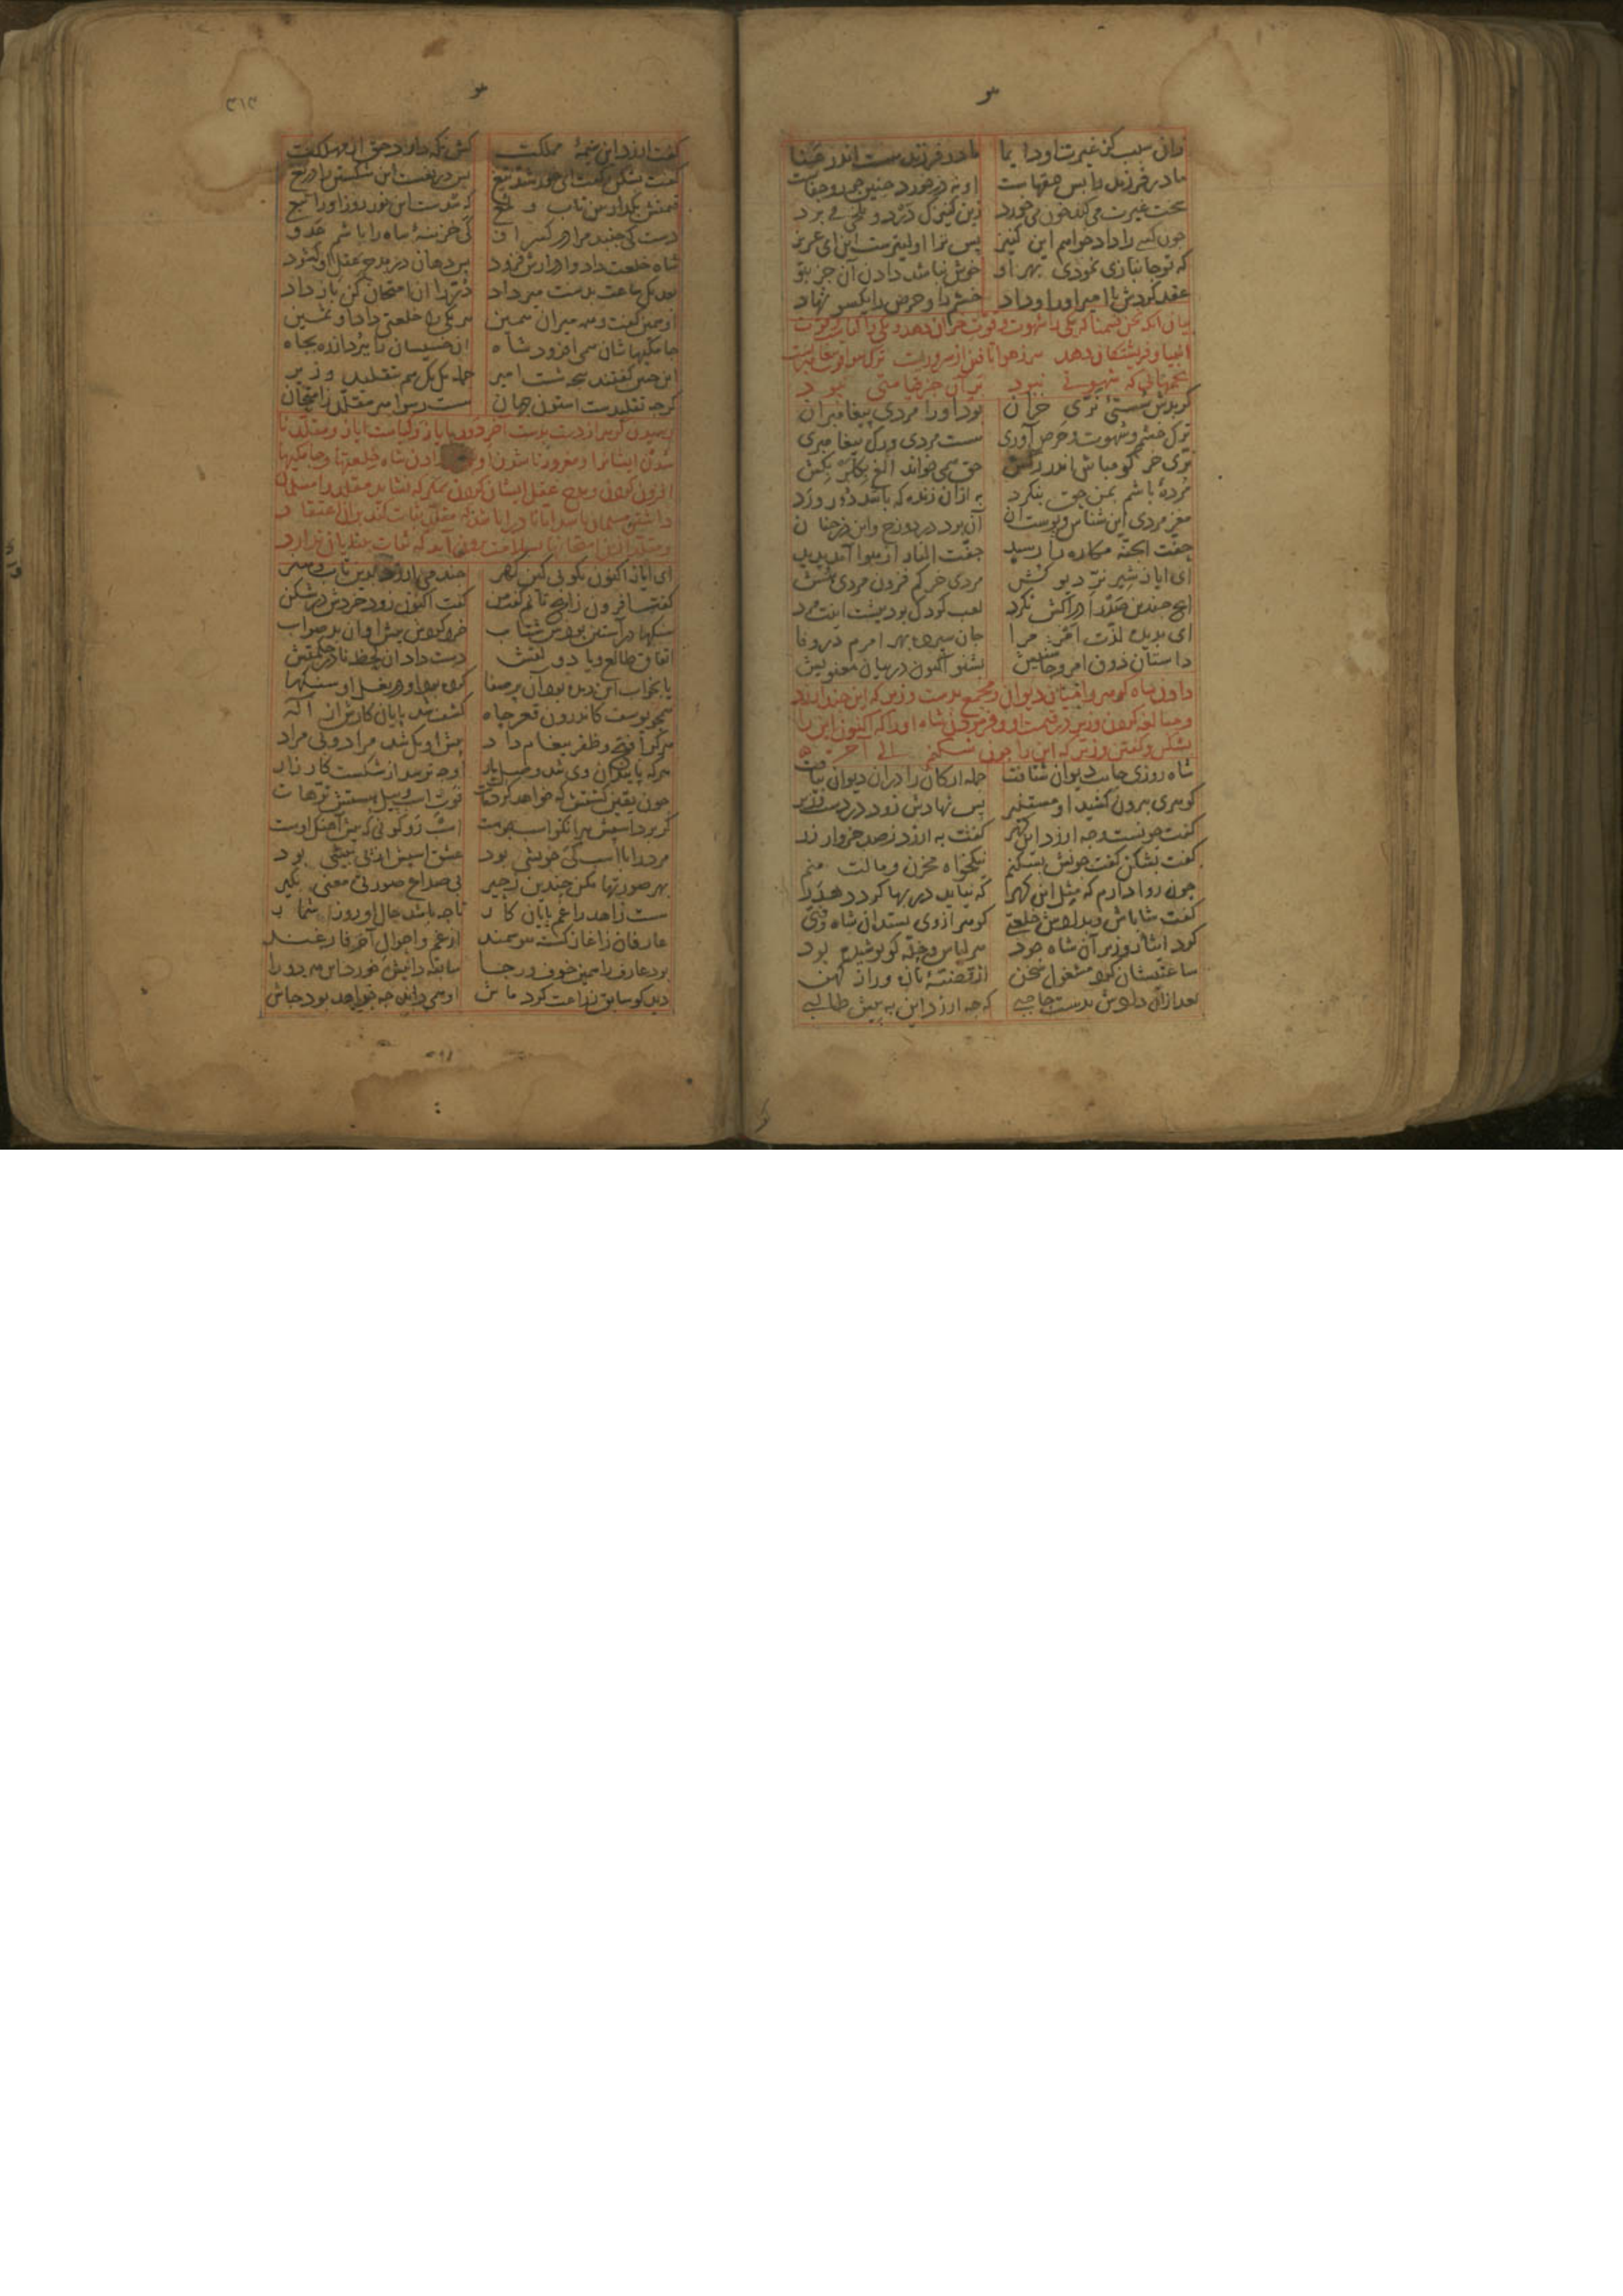 زانی سبب کز غیرت او دایما مادر فرزند ست اندر عنا
مادر فرزند را بس حقهاست او نه در خورد چنین جور و جفاست
سخت غیرت می‌کند خون می‌خورد زین کنیزک درد و تلخی می برد
چون کسے را داد خواهم این کنیز پس ترا اولیترست این ای عزیز
که تو جانبازی نمودی بهر او خوش نباشد دادن آن جز بتو
عقد کردش با امیر او را داد خشم را و حرص را یکسو نهاد
بیان آنکه نحن قسمنا که یکی را شهوت و قوت خران دهد و یکی را کیاست و قوت
انبیا و فریشتکان دهد
کر بدش سستئ نرّی خران بود او را مردی پیغامبران
ترک خشم و شهوت و حرص آوری ست مردی و رک پیغامبری
نرّی خر کو مباش اندر رکش حق همی خواند الغ بکلربکش
مردهٔ باشم بمن حق بنکرد به از آن زنده که باشد دور و رد
مغز مردی این شناس و پوست آن آن برد در دوزخ و این در جنان
حفت الجنه مکاره را رسید حفت النار از هوا آمد پدید
ای ایاز شیر نرّ دیو کش مردی خر کم فزون مردی هش
آنچ چندین صدر ادراکش نکرد لعب کودک بود پیشت اینت مرد
ای بدیده لذت امر مرا جان سپرده بهر امرم در وفا
داستان ذوق امر و چاشنیش بشنو اکنون در بیان معنویش
دادن شاه کوهر را میان دیوان و مجمع بدست وزیر که این چند ارزد
و مبالغه کردن وزیر در قیمت او و فرمودن شاه او را که اکنون این را
بشکن و کفتن وزیر که این را چون بشکنم الے آخره
شاه روزی جانب دیوان شتافت جمله ارکان را در آن دیوان بیافت
کوهری بیرون کشید او مستنیر پس نهادش زود در دست وزیر
کفت چونست و چه ارزد این کهر کفت به ارزد ز صد خروار زر
کفت بشکن کفت چونش بشکنم نیکخواه مخزن و مالت منم
چون روا دارم که مثل این کهر که نیاید در بها کردد هدر
کفت شاباش و بدادش خلعتے کوهر از وی بستد آن شاه و فتی
کرد ایثار وزیر آن شاه جود هر لباس و حله کو پوشیده بود
ساعتیشان کرد مشغول سخن از قضیّهٔ تازه و راز کهن
بعد از آن دادش بدست حاجبے که چه ارزد این به پیش طالبے
۳۱۳
کفت ارزد این نیمهٔ مملکت کش نکه دارد حق از مهلکت
کفت بشکن کفت ای خورشید تیغ پس دریغست این شکستن را دریغ
قیمتش بکذار بین تاب و لمع که شدست این نور روز او را تبع
دست کی جنبد مرا در کسر او کی خزینهٔ شاه را باشم عدو
شاه خلعت داد و ادرارش فزود پس دهان در مدح عقل او کشود
بعد یک ساعت بدست میر داد درّ را آن امتحان کن باز داد
او همین کفت و همه میران همین هر یکی را خلعتی داد او ثمین
جامکیهاشان همی افزود شاه آن خسیسان را ببرد از ره بجاه
این چنین کفتند پنجه شصت امیر جمله یک یک هم بتقلید وزیر
کرچه تقلیدست استون جهان ست رسوا هر مقلّد ز امتحان
رسیدن کوهر از دست بدست آخر دور بایاز و کیاست ایاز و مقلّد نا
شدن ایشانرا و مغرور نا شدن او دادن شاه خلعتها و جامکیها
افزون کردن و مدح عقل ایشان کردن بمکر که نشاید مقلد را مسلمان
داشتن
ای ایاز اکنون نکوئی کین کهر چند می ارزد بدین تاب و هنر
کفت افزون زانچ تانم کفت من کفت اکنون زود خردش در شکن
سنکها در آستین بودش شتاب خرد کردش پیش او آن بد صواب
اتفاق طالع و یا دولتش دست داد آن لحظه نادر حکمتش
یا بخواب این دیده بود آن پر صفا کرده بود او در بغل او سنکها
همچو یوسف کاندرون قعر چاه کشف شد پایان کارش از اله
هر کرا فتح و ظفر پیغام داد پیش او یک شد مراد و بی مراد
هر که پایندان وی شد وصل یار او چه ترسد از شکست کارزار
چون یقین کشتش که خواهد کرد مات فوت اسپ و پیل هستش ترهات
کر برد اسپش هر آنک اسب جوست اسب رو کونی که پیش آهنک اوست
مرد را با اسب کی خویشی بود عشق اسپش از پی پیشی بود
بهر صورتها مکش چندین زحیر بی صداع صورتی معنی بکیر
ست زاهد را غم پایان کار تا چه باشد حال او روز شمار
عارفان ز آغاز کشته هوشمند از غم و احوال آخر فارغند
بود عارف را همین خوف و رجا سابقه دانیش خورد این هر دو را
دید کو سابق زراعت کرد ماش او همی داند چه خواهد بود چاش